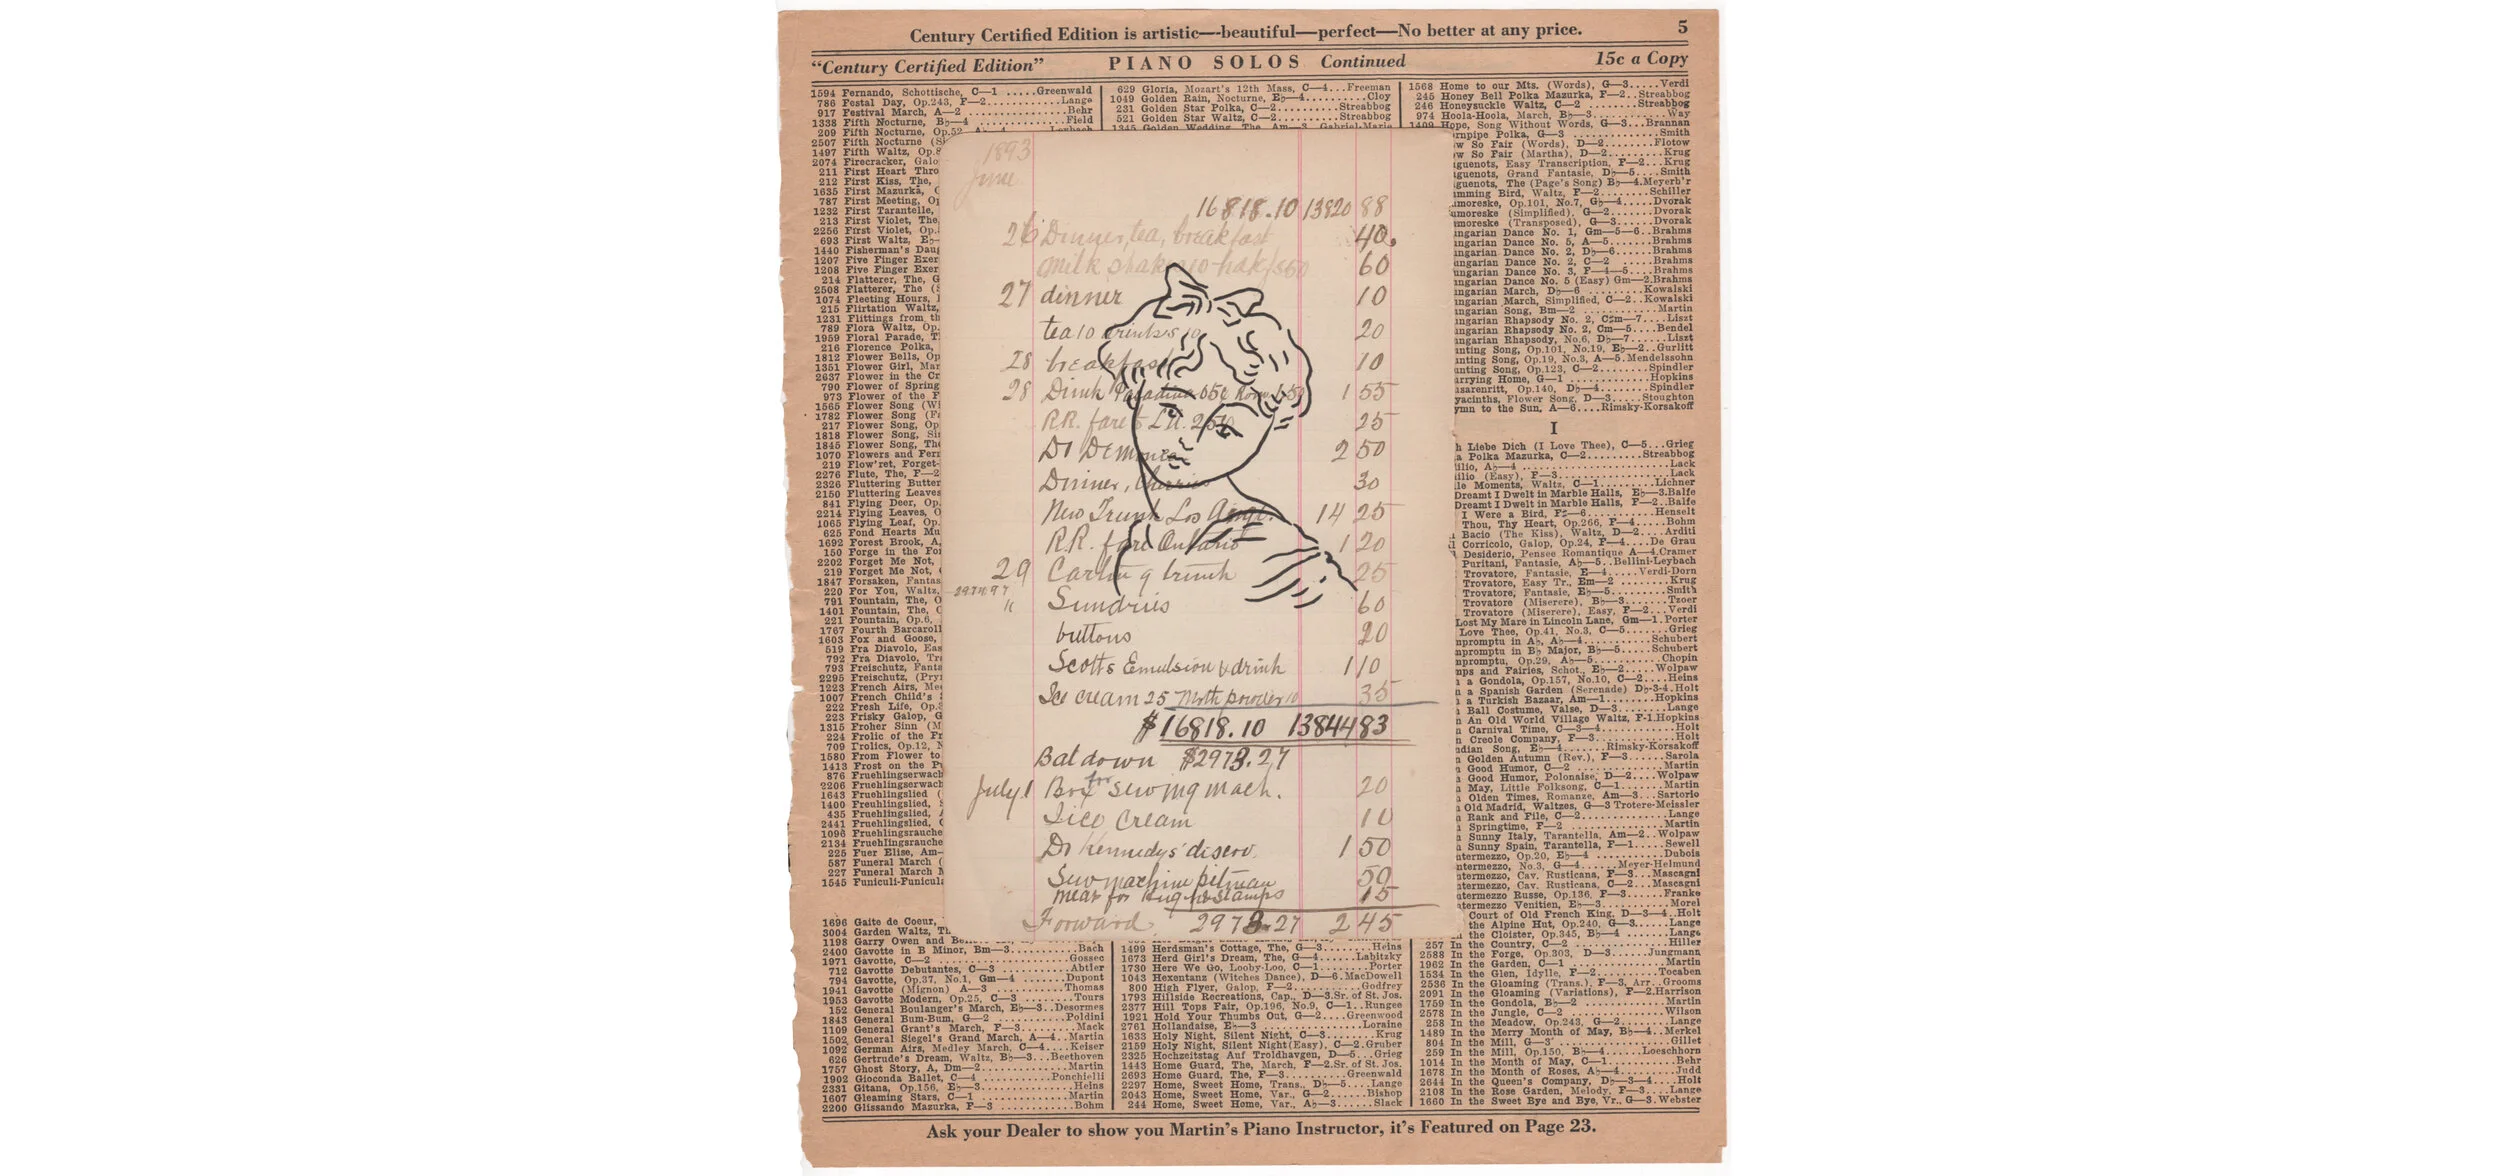 Century Certified Edition is artistic—beautiful—perfect—No better at any price. 5
"Century Certified Edition" PIANO SOLOS Continued 15c a Copy
1594 Fernando, Schottische, C—1 .....Greenwald
786 Festal Day, Op.243, F—2............Lange
917 Festival March, A—2 ................Behr
1338 Fifth Nocturne, B♭—4 ..............Field
209 Fifth Nocturne, Op.52
2507 Fifth Nocturne
1497 Fifth Waltz, Op.
2074 Firecracker, Galo
211 First Heart Thro
212 First Kiss, The,
1635 First Mazurka,
787 First Meeting, Op
1232 First Tarantelle,
213 First Violet, The,
2256 First Violet, Op.
693 First Waltz, E♭—
1440 Fisherman's Dau
1207 Five Finger Exer
1208 Five Finger Exer
214 Flatterer, The, G
2508 Flatterer, The
1074 Fleeting Hours,
215 Flirtation Waltz,
1231 Flittings from th
789 Flora Waltz, Op.
1959 Floral Parade, T
216 Florence Polka,
1812 Flower Bells, Op
1351 Flower Girl, Mar
2637 Flower in the Cr
790 Flower of Spring
973 Flower of the F
1565 Flower Song (Wi
1782 Flower Song
217 Flower Song, Op
1818 Flower Song, Si
1845 Flower Song, Th
1070 Flowers and Fer
219 Flow'ret, Forget-
2276 Flute, The, F—2
2326 Fluttering Butter
2150 Fluttering Leaves
841 Flying Deer, Op.
2214 Flying Leaves, O
1065 Flying Leaf, Op.
625 Fond Hearts Mu
1692 Forest Brook, A,
150 Forge in the Fo
2202 Forget Me Not,
219 Forget Me Not,
1847 Forsaken, Fantas
220 For You, Waltz,
791 Fountain, The, O
1401 Fountain, The,
221 Fountain, Op.6,
1767 Fourth Barcaroll
1603 Fox and Goose,
519 Fra Diavolo, Eas
792 Fra Diavolo, Tr
793 Freischutz, Fanta
2295 Freischutz, (Pry
1223 French Airs, Me
1007 French Child's
222 Fresh Life, Op.
223 Frisky Galop, G
1315 Froher Sinn (M
224 Frolic of the Fr
709 Frolics, Op.12, N
1580 From Flower to
1413 Frost on the P
876 Fruehlingserwach
2206 Fruehlingserwach
1643 Fruehlingslied
1400 Fruehlingslied,
435 Fruehlingslied,
2441 Fruehlingslied,
1096 Fruehlingsrausche
2134 Fruehlingsrausche
225 Fuer Elise, Am—
587 Funeral March
227 Funeral March
1545 Funiculi-Funicula
1696 Gaite de Coeur,
3004 Garden Waltz, Th
1198 Garry Owen and
2400 Gavotte in B Minor, Bm—3.........Bach
1971 Gavotte, C—2 ....................Gossec
712 Gavotte Debutantes, C—3 ..........Abtler
794 Gavotte, Op.37, No.1, Gm—4 ......Dupont
1941 Gavotte (Mignon) A—3 ...........Thomas
1953 Gavotte Modern, Op.25, C—3 ......Tours
152 General Boulanger's March, E♭—3..Desormes
1843 General Bum-Bum, G—2 ..........Poldini
1109 General Grant's March, F—3........Mack
1502 General Siegel's Grand March, A—4..Martin
1092 German Airs, Medley March, C—4....Keiser
626 Gertrude's Dream, Waltz, B♭—3...Beethoven
1757 Ghost Story, A, Dm—2 ............Martin
1902 Gioconda Ballet, C—4 .........Ponchielli
2331 Gitana, Op.156, E♭—3..............Heins
1607 Gleaming Stars, C—1 ..............Martin
2200 Glissando Mazurka, F—3 ............Bohm
629 Gloria, Mozart's 12th Mass, C—4...Freeman
1049 Golden Rain, Nocturne, E♭—4.........Cloy
231 Golden Star Polka, C—2.........Streabbog
521 Golden Star Waltz, C—2.........Streabbog
1345 Golden Wedding, The, Am—3..Gabriel-Marie
1893
June
16818.10 13820 88
26 Dinner, tea, breakfast 40
60
27 dinner 10
tea 10 drinks 10 20
28 breakfast 10
28 1 55
R.R. fare 25
2 50
Dinner, Cherries 30
New Trunk Los Angl. 14 25
R.R. fare Ontario 1 20
29 25
" Sundries 60
buttons 20
Scotts Emulsion & drink 1 10
Ice cream 25 Moth powder 10 35
$16818.10 13844 83
Bal down $2973.27
July 1 Box for sewing mach. 20
Ice Cream 10
Dr Kennedys' discov. 1 50
Sew machine pitman 50
15
Forward 2973.27 2 45
1499 Herdsman's Cottage, The, G—3........Heins
1673 Herd Girl's Dream, The, G—4......Labitzky
1730 Here We Go, Looby-Loo, C—1........Porter
1043 Hexentanz (Witches Dance), D—6.MacDowell
800 High Flyer, Galop, F—2............Godfrey
1793 Hillside Recreations, Cap., D—3.Sr. of St. Jos.
2377 Hill Tops Fair, Op.196, No.9, C—1..Rungee
1921 Hold Your Thumbs Out, G—2....Greenwood
2761 Hollandaise, E♭—3 ...............Loraine
1633 Holy Night, Silent Night, C—3........Krug
2159 Holy Night, Silent Night(Easy), C—2.Gruber
2325 Hochzeitstag Auf Troldhavgen, D—5...Grieg
1443 Home Guard, The, March, F—2.Sr. of St. Jos.
2693 Home Guard, The, F—3..........Greenwald
2297 Home, Sweet Home, Trans., D♭—5....Lange
2043 Home, Sweet Home, Var., G—2.......Bishop
244 Home, Sweet Home, Var., A♭—3......Slack
1568 Home to our Mts. (Words), G—3.....Verdi
245 Honey Bell Polka Mazurka, F—2..Streabbog
246 Honeysuckle Waltz, C—2 ........Streabbog
974 Hoola-Hoola, March, B♭—3...........Way
1409 Hope, Song Without Words, G—3...Brannan
rnpipe Polka, G—3 ................Smith
w So Fair (Words), D—2........Flotow
w So Fair (Martha), D—2.........Krug
guenots, Easy Transcription, F—2...Krug
guenots, Grand Fantasie, D♭—5....Smith
guenots, The (Page's Song) B♭—4.Meyerb'r
mming Bird, Waltz, F—2........Schiller
moreske, Op.101, No.7, G♭—4.....Dvorak
moreske (Simplified), G—2.......Dvorak
moreske (Transposed), G—3......Dvorak
ngarian Dance No. 1, Gm—5—6..Brahms
ngarian Dance No. 5, A—5.......Brahms
ngarian Dance No. 2, D♭—6......Brahms
ngarian Dance, No. 2, C—2 ......Brahms
ngarian Dance, No. 3, F—4—5....Brahms
ngarian Dance No. 5 (Easy) Gm—2.Brahms
ngarian March, D♭—6 .........Kowalski
ngarian March, Simplified, C—2..Kowalski
ngarian Song, Bm—2 ...........Martin
ngarian Rhapsody No. 2, C♯m—7.....Liszt
ngarian Rhapsody No. 2, Cm—5....Bendel
ngarian Rhapsody, No.6, D♭—7......Liszt
nting Song, Op.101, No.19, E♭—2..Gurlitt
nting Song, Op.19, No.3, A—5.Mendelssohn
nting Song, Op.123, C—2........Spindler
rrying Home, G—1 .............Hopkins
ssarenritt, Op.140, D♭—4........Spindler
yacinths, Flower Song, D—3.....Stoughton
ymn to the Sun, A—6....Rimsky-Korsakoff
I
h Liebe Dich (I Love Thee), C—5...Grieg
a Polka Mazurka, C—2.........Streabbog
ilio, A♭—4 .......................Lack
ilio (Easy), F—3..................Lack
le Moments, Waltz, C—1.........Lichner
Dreamt I Dwelt in Marble Halls, E♭—3.Balfe
Dreamt I Dwelt in Marble Halls, F—2..Balfe
I Were a Bird, F♯—6...........Henselt
Thou, Thy Heart, Op.266, F—4.....Bohm
Bacio (The Kiss), Waltz, D—2....Arditi
Corricolo, Galop, Op.24, F—4....De Grau
Desiderio, Pensee Romantique A—4.Cramer
Puritani, Fantasie, A♭—5..Bellini-Leybach
Trovatore, Fantasie, E—4......Verdi-Dorn
Trovatore, Easy Tr., Em—2 ........Krug
Trovatore, Fantasie, E♭—5.........Smith
Trovatore (Miserere), B♭—3........Tzoer
Trovatore (Miserere), Easy, F—2...Verdi
Lost My Mare in Lincoln Lane, Gm—1.Porter
Love Thee, Op.41, No.3, C—5.......Grieg
mpromptu in A♭, A♭—4..........Schubert
mpromptu in B♭ Major, B♭—5.....Schubert
mpromptu, Op.29, A♭—5...........Chopin
mps and Fairies, Schot., E♭—2.....Wolpaw
n a Gondola, Op.157, No.10, C—2....Heins
n a Spanish Garden (Serenade) D♭-3-4.Holt
n a Turkish Bazaar, Am—1.......Hopkins
n Ball Costume, Valse, D—3........Lange
n An Old World Village Waltz, F-1.Hopkins
n Carnival Time, C—3—4............Holt
n Creole Company, F—3.............Holt
ndian Song, E♭—4.......Rimsky-Korsakoff
n Golden Autumn (Rev.), F—3......Sarola
n Good Humor, C—2 .............Martin
n Good Humor, Polonaise, D—2....Wolpaw
n May, Little Folksong, C—1.......Martin
n Olden Times, Romanze, Am—3...Sartorio
n Old Madrid, Waltzes, G—3 Trotere-Meissler
n Rank and File, C—2.............Lange
n Springtime, F—2 ...............Martin
n Sunny Italy, Tarantella, Am—2..Wolpaw
n Sunny Spain, Tarantella, F—1.....Sewell
ntermezzo, Op.20, E♭—4 ..........Dubois
ntermezzo, No.3, G—4......Meyer-Helmund
ntermezzo, Cav. Rusticana, F—3...Mascagni
ntermezzo, Cav. Rusticana, C—2...Mascagni
ntermezzo Russe, Op.136, F—3......Franke
ntermezzo Venitien, E♭—3..........Morel
Court of Old French King, D—3—4..Holt
the Alpine Hut, Op.240, G—3......Lange
the Cloister, Op.345, B♭—4........Lange
257 In the Country, C—2 ..............Hiller
2588 In the Forge, Op.303, D—3......Jungmann
1962 In the Garden, C—1 .............Martin
1534 In the Glen, Idylle, F—2.........Tocaben
2536 In the Gloaming (Trans.), F—3, Arr..Grooms
2091 In the Gloaming (Variations), F—2.Harrison
1759 In the Gondola, B♭—2 ............Martin
2578 In the Jungle, C—2 ..............Wilson
258 In the Meadow, Op.243, G—2........Lange
1489 In the Merry Month of May, B♭—4..Merkel
804 In the Mill, G—3 .................Gillet
259 In the Mill, Op.150, B♭—4.....Loeschhorn
1014 In the Month of May, C—1..........Behr
1678 In the Month of Roses, A♭—4........Judd
2644 In the Queen's Company, D♭—3—4....Holt
2108 In the Rose Garden, Melody, F—3....Lange
1660 In the Sweet Bye and Bye, Vr., G—3.Webster
Ask your Dealer to show you Martin's Piano Instructor, it's Featured on Page 23.